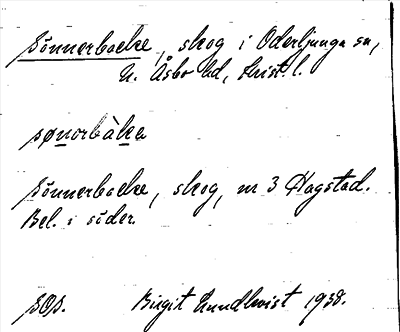 Sönnerbacke, skog i Oderljunga sn,
N. Åsbo hd, Krist. l.
sønorbàka
Sönnerbacke, skog, nr 3 Hagstad.
Bel. i söder.
SOA.
Birgit Lundkvist 1938.